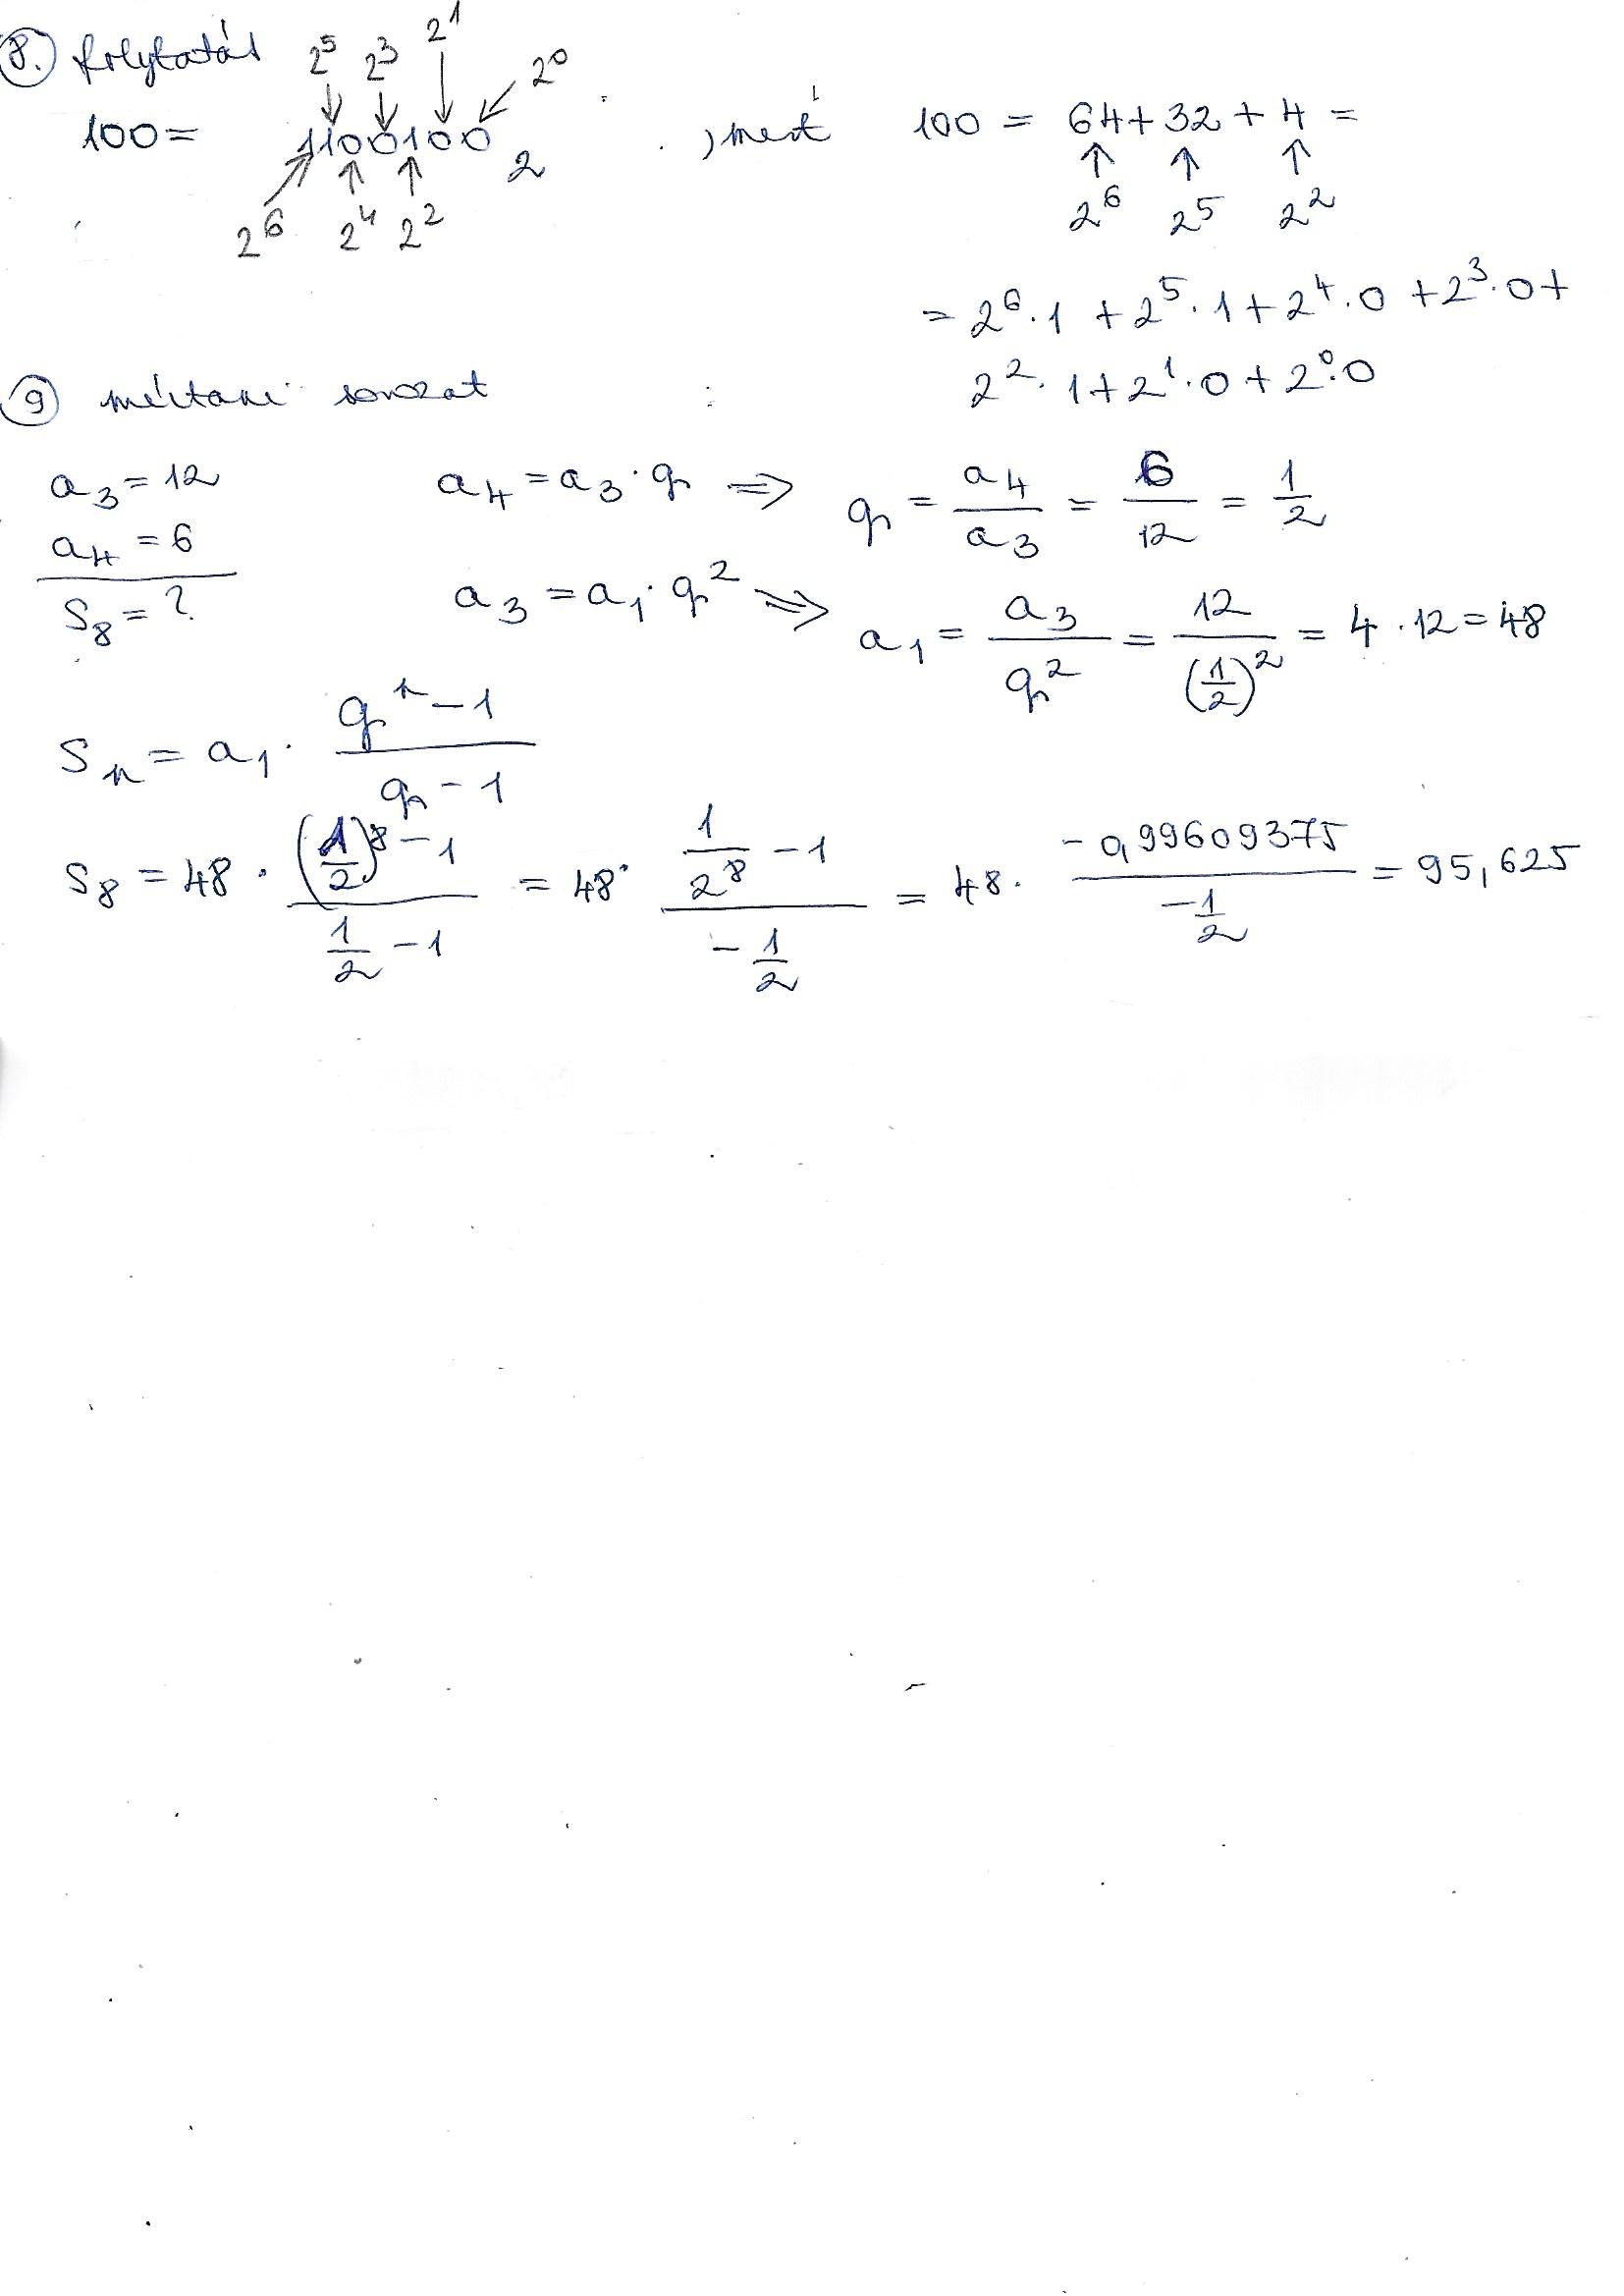 8. folytatás
2⁵ 2³ 2¹ 2⁰
100 = 1100100₂ , mert 100 = 64 + 32 + 4 =
2⁶ 2⁴ 2² 2⁶ 2⁵ 2²
= 2⁶·1 + 2⁵·1 + 2⁴·0 + 2³·0 +
2²·1 + 2¹·0 + 2⁰·0
9 mértani sorozat
a₃ = 12 a₄ = a₃·q ⇒ q = a₄/a₃ = 6/12 = 1/2
a₄ = 6
S₈ = ? a₃ = a₁·q² ⇒ a₁ = a₃/q² = 12/(1/2)² = 4·12 = 48
Sₙ = a₁· (qⁿ - 1)/(q - 1)
S₈ = 48 · ((1/2)⁸ - 1)/(1/2 - 1) = 48 · (1/2⁸ - 1)/(-1/2) = 48 · (-0,99609375)/(-1/2) = 95,625